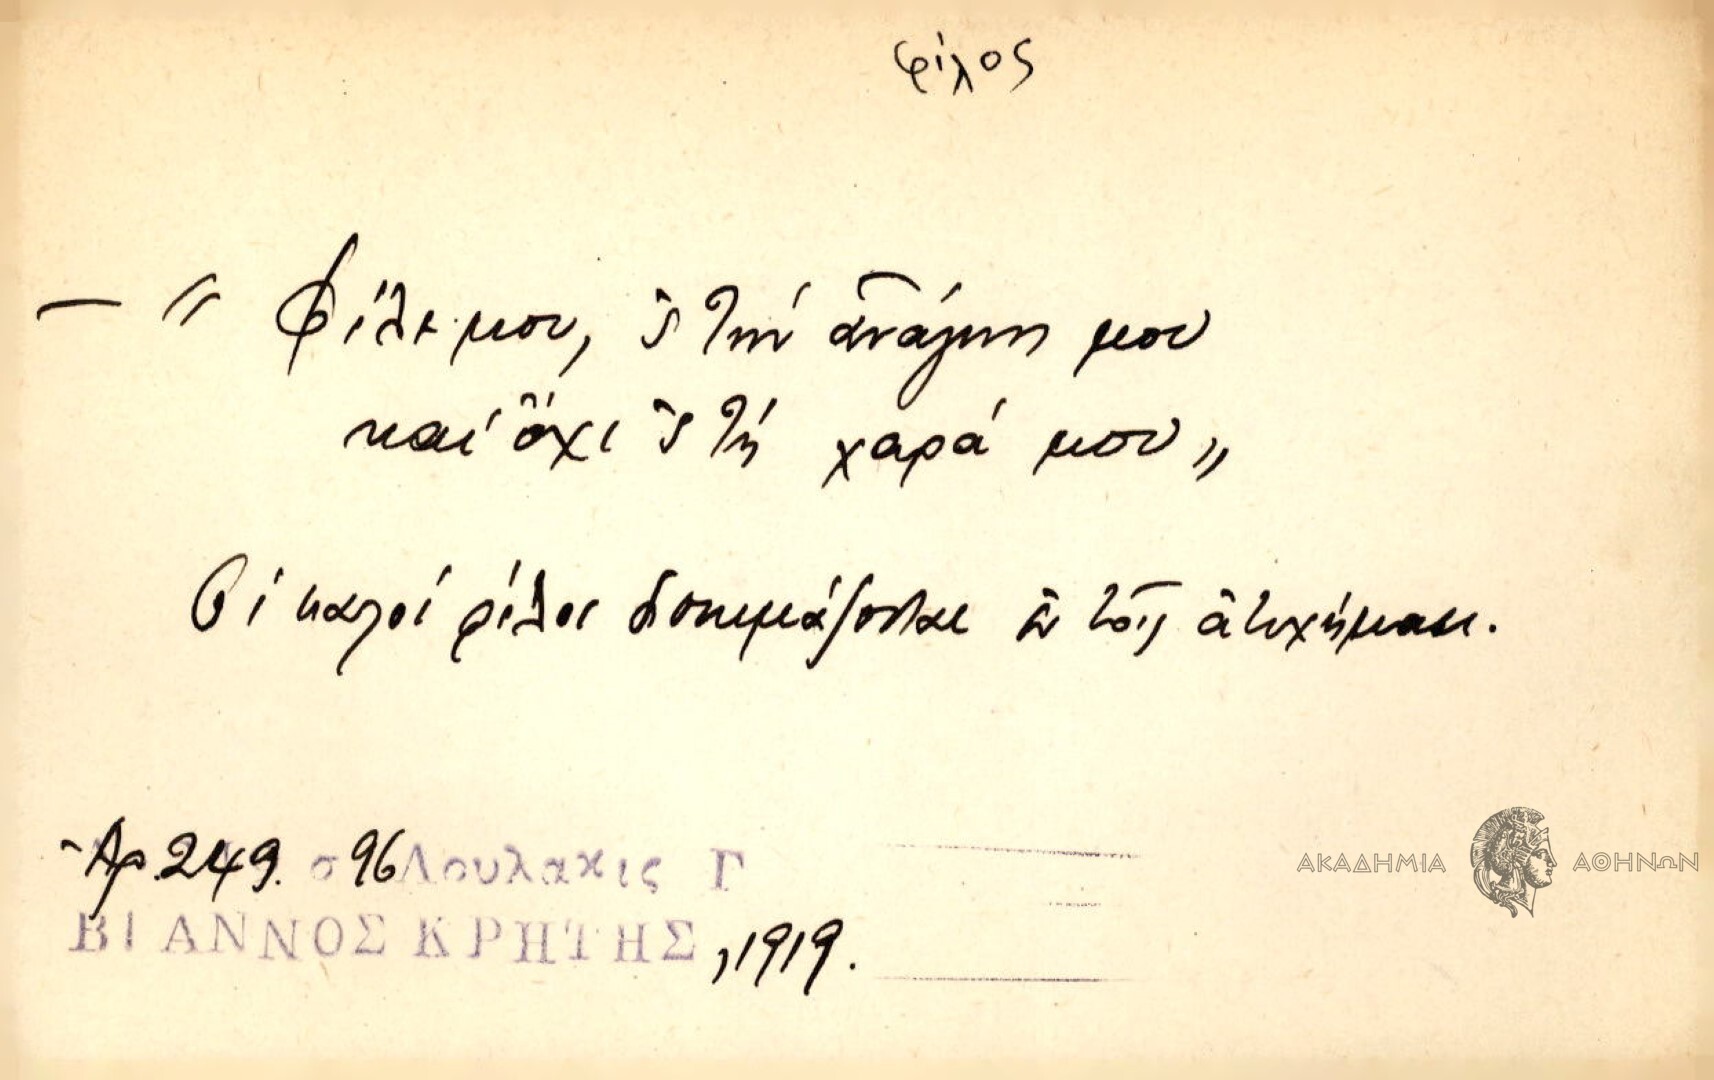 φίλος
— " Φίλε μου, 'ς τὴν ἀνάγκη μου
καὶ ὄχι 'ς τὴ χαρά μου „
Οἱ καλοί φίλοι δοκιμάζονται ἐν τοῖς ἀτυχήμασι.
Ἀρ. 249. 96 Λουλακις Γ
ΒΙΑΝΝΟΣ ΚΡΗΤΗΣ, 1919.
ΑΚΑΔΗΜΙΑ ΑΘΗΝΩΝ